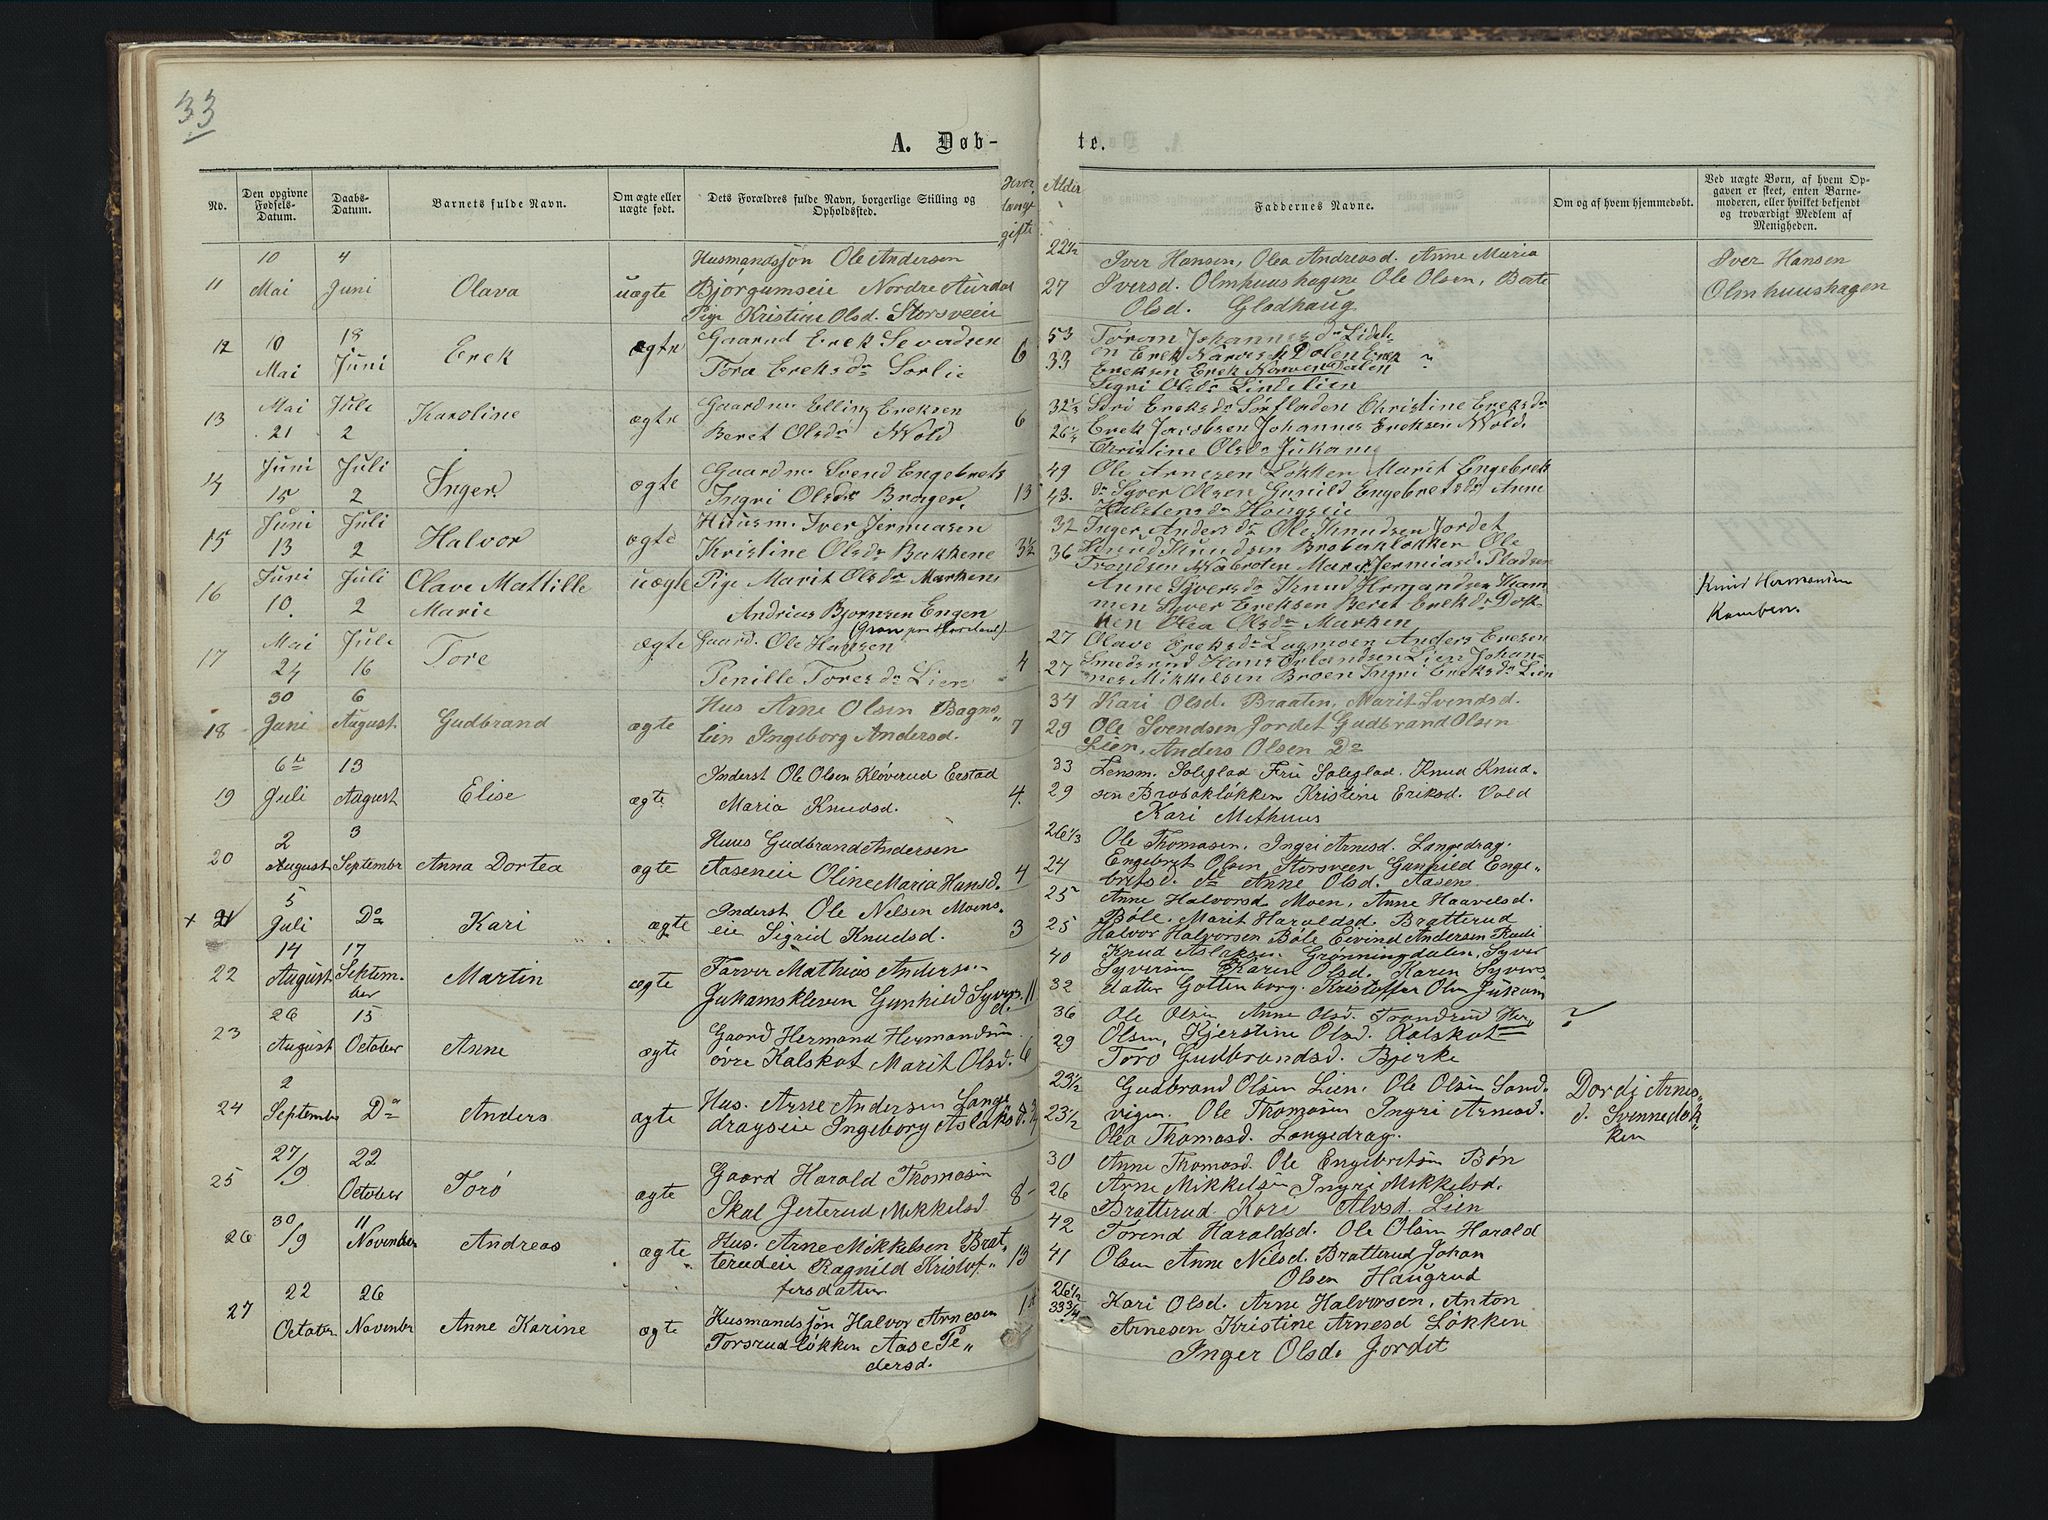 33
A. Døb-
te.
No.
Den opgivne Fødsels-Datum.
Daabs-Datum.
Barnets fulde Navn.
Om ægte eller uægte født.
Dets Forældres fulde Navn, borgerlige Stilling og Opholdssted.
Hvor længe gifte
Alder
Faddernes Navne.
Om og af hvem hjemmedøbt.
Ved uægte Børn, af hvem Op-
gaven er skeet, enten Barne-
moderen, eller hvilket bekjendt
og troværdigt Medlem af
Menigheden.
10 4 Husmandssøn Ole Andersen 22½ Iver Hansen, Olea Andreasd. Anne Maria Iver Hansen
11 Mai Juni Olava uægte Bjørgumseie Nordre Aurdal 27 Iversd. Olmhuushagene Ole Olsen, Berte Olmhuushagen
Pige Kristine Olsd. Storsveen Olsd. Gladhaug
12 10 18 Gaard Erek Sevadsen 53 Tøran Johannesdr Lidel-
Mai Juni Erek ægte Tora Ereksdr Sørlie 6 33 en Erek Dalen Erek
Ereksen Erek Dalen
Sigri Olsdr Lindelien
13 Mai Jule Karoline ægte Gaardm Elling Ereksen 6 32½ Siri Ereksdr Sørfladen Christine Ereksdr
21 2 Beret Olsdr Wold 26½ Erek Jacobsen Johannes Ereksen Wold.
Christine Olsdr Jukam
14 Juni Juli Inger. ægte Gaardm Svend Engebrets 13 49 Ole Arnesen Løkken Marit Engebrek
15 2 Ingri Olsdr Brager. 43. dr Syver Olsen Gunild Engebretsdr Anne
Halstensdr Hougseie
15 Juni Juli Halvor ægte Huusm. Iver Jermiasen 3½ 32 Inger Andersdr Ole Knudsen Jordet
13 2 Kristine Olsdr Bakkene 36 Knud Knudsen Brobækløkken Ole
Trondsen Marit Jermiasd. Pladsen
16 Juni Juli Olave Mattille uægte Pige Marit Olsdr Marken Anne Syversdr Knud Hermandsen Kram Knud Hermansen
10. 2 Marie Andrias Bjørnsen Engen men Syver Ereksen Beret Ereksdr Dok- Kramben.
ken Olea Olsdr Marken
17 Mai Jule Tore ægte Gaard. Ole Hansen 4 27 Olave Ereksdr Lagmoen Anders Eresen
24 16 Penille Toresdr Lien 27 Smedsrud Hans Erlandsen Lien Johan-
nes Mikkelsen Broen Ingri Ereksdr Lien
30 6 Hus Arne Olsen Bagns 34 Kari Olsd. Braaten, Marit Svendsd.
18 Juni August Gudbrand ægte lien Ingeborg Andersd. 7 29 Ole Svendsen Jordet Gudbrand Olsen
Lien, Anders Olsen Do
6te 13 Inderst Ole Olsen Kløverud Erstad 33 Lensm. Soleglad Fru Soleglad. Knud Knud-
19 Juli August Elise ægte Maria Knudsd. 4. 29 sen Brobækløkken Kristine Eriksd. Vold
Kari Methuus
2 3 Huus Gudbrand Andersen 26⅓ Ole Thomasen. Ingri Arnesd. Langedrag.
20 August Septembr Anna Dortea ægte Aaseneie Oline Maria Hansd. 4 24 Engebret Olsen Storsveen Gunhild Enge-
britsd. do Anne Olsd. Aasen
+ 21 5 Juli Do Kari ægte Inderst Ole Nelsen Moens- 3 25 Anne Halvorsd. Moen, Anne Haavelsd.
eie Sigrid Knudsd. 25 Bøle. Marit Haraldsd. Bratterud
Halvor Halvorsen Bøle Eivind Andersen Rudi
14 17 Farver Mathias Anders. 40 Knud Aslaksen. Grønningdalen, Syver
22 August Septem- Martin ægte Jukamskleven Gunhild Syvers 11 Syversen Karin Olsd. Karen Syvers
ber d. 32 datter Gottenborg. Kristoffer Olsen Jukam
26 15 Gaard Hermand Hermandsen 36 Ole Olsen Anne Olsd. Trondrud Her ?
23 August October Anne ægte øvre Kalskot Marit Olsd. 6 29 Olsen, Kjerstine Olsd. Kalskot
Toro Gudbrandsd. Bjerke
2 Hus. Arne Andersen Lange 23½ Gudbrand Olsen Lien. Ole Olsen Sand- Dordi Arnes
24 Septembr Do Anders ægte dragseie Ingeborg Aslaksd. 23½ vigen. Ole Thomasen Ingri Arnesd. d. Svennedok
Olea Thomasd. Langedrag. ken
27/9 22 Gaard Harald Thomasen 30 Anne Thomasd. Ole Engebretsen Bøn
25 October Torø ægte Skal Jerterud Mikkelsd 8 26 Arne Mikkelsen Ingri Mikkelsd.
Bratterud Kari Alvsd. Lien
30/9 11 42 Torend Haraldsd. Ole Olsen Harald
26 Novembr Andreas ægte Hus. Arne Mikkelsen Brat- 13 41 Olsen Anne Nilsd. Bratterud Johan
terudeie Ragnild Kristof- Olsen Haugrud
fersdatter
22 26 26½ Kari Olsd. Arne Halvorsen, Anton
27 October Novembr Anne Karine ægte Husmandssøn Halvor Arnesen 1 33¾ Arnesen Kristine Arnesd Løkken
Torsrudløkken Aase Pe- Inger Olsd. Jordet
dersd.